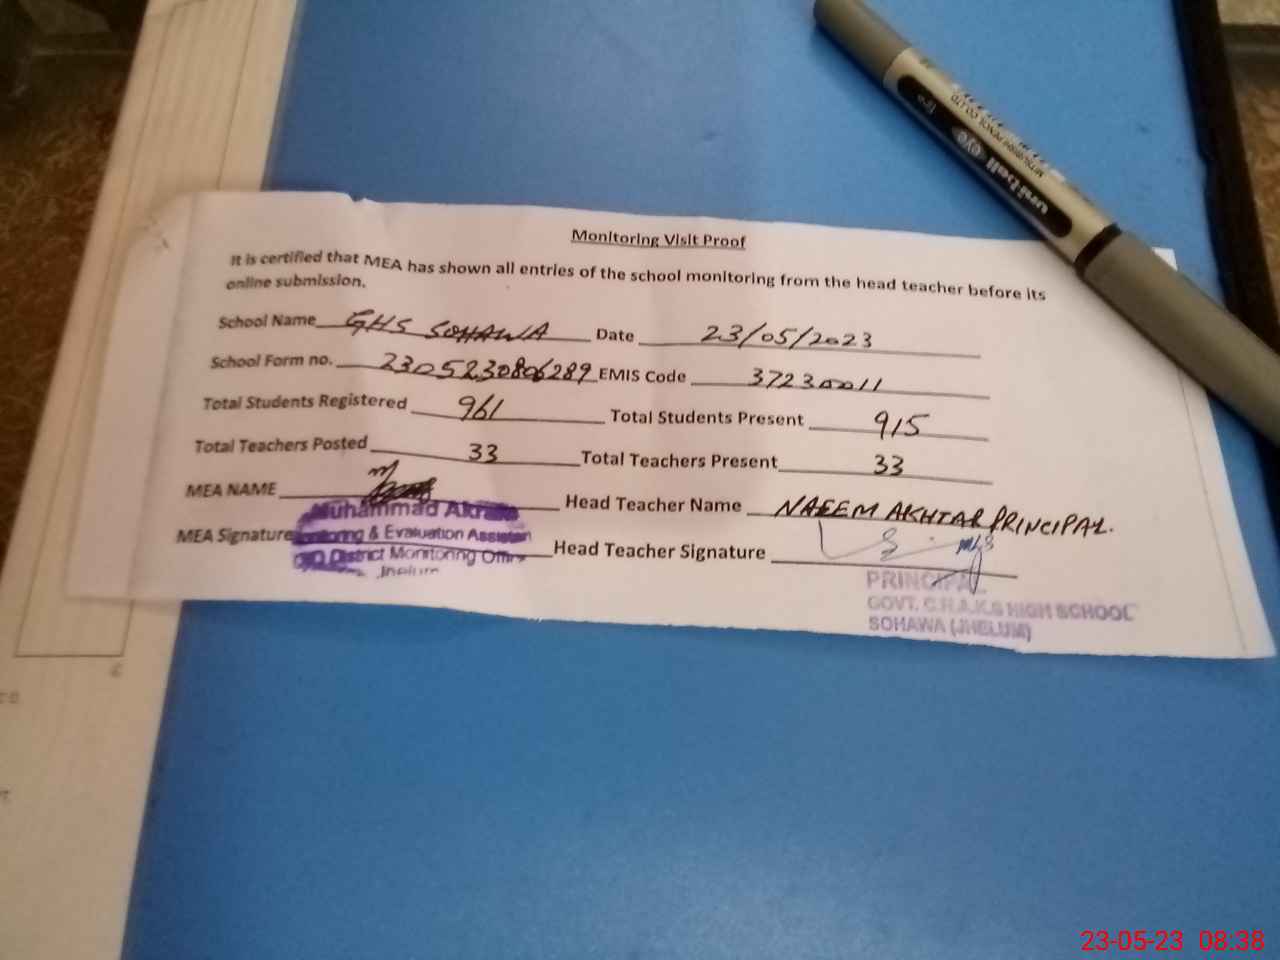 Monitoring Visit Proof
It is certified that MEA has shown all entries of the school monitoring from the head teacher before its
online submission.
School Name GHS SOHAWA Date 23/05/2023
School Form no. 2305230806289 EMIS Code 37230011
Total Students Registered 961 Total Students Present 915
Total Teachers Posted 33 Total Teachers Present 33
MEA NAME Head Teacher Name NAEEM AKHTAR PRINCIPAL.
Muhammad Akram
MEA Signature Monitoring & Evaluation Assistan Head Teacher Signature
District Monitoring Office
Jhelum
PRINCIPAL
GOVT. C.H.A.K.S HIGH SCHOOL
SOHAWA (JHELUM)
uni-ball eye
MITSUBISHI PENCIL CO. LTD
23-05-23 08:38